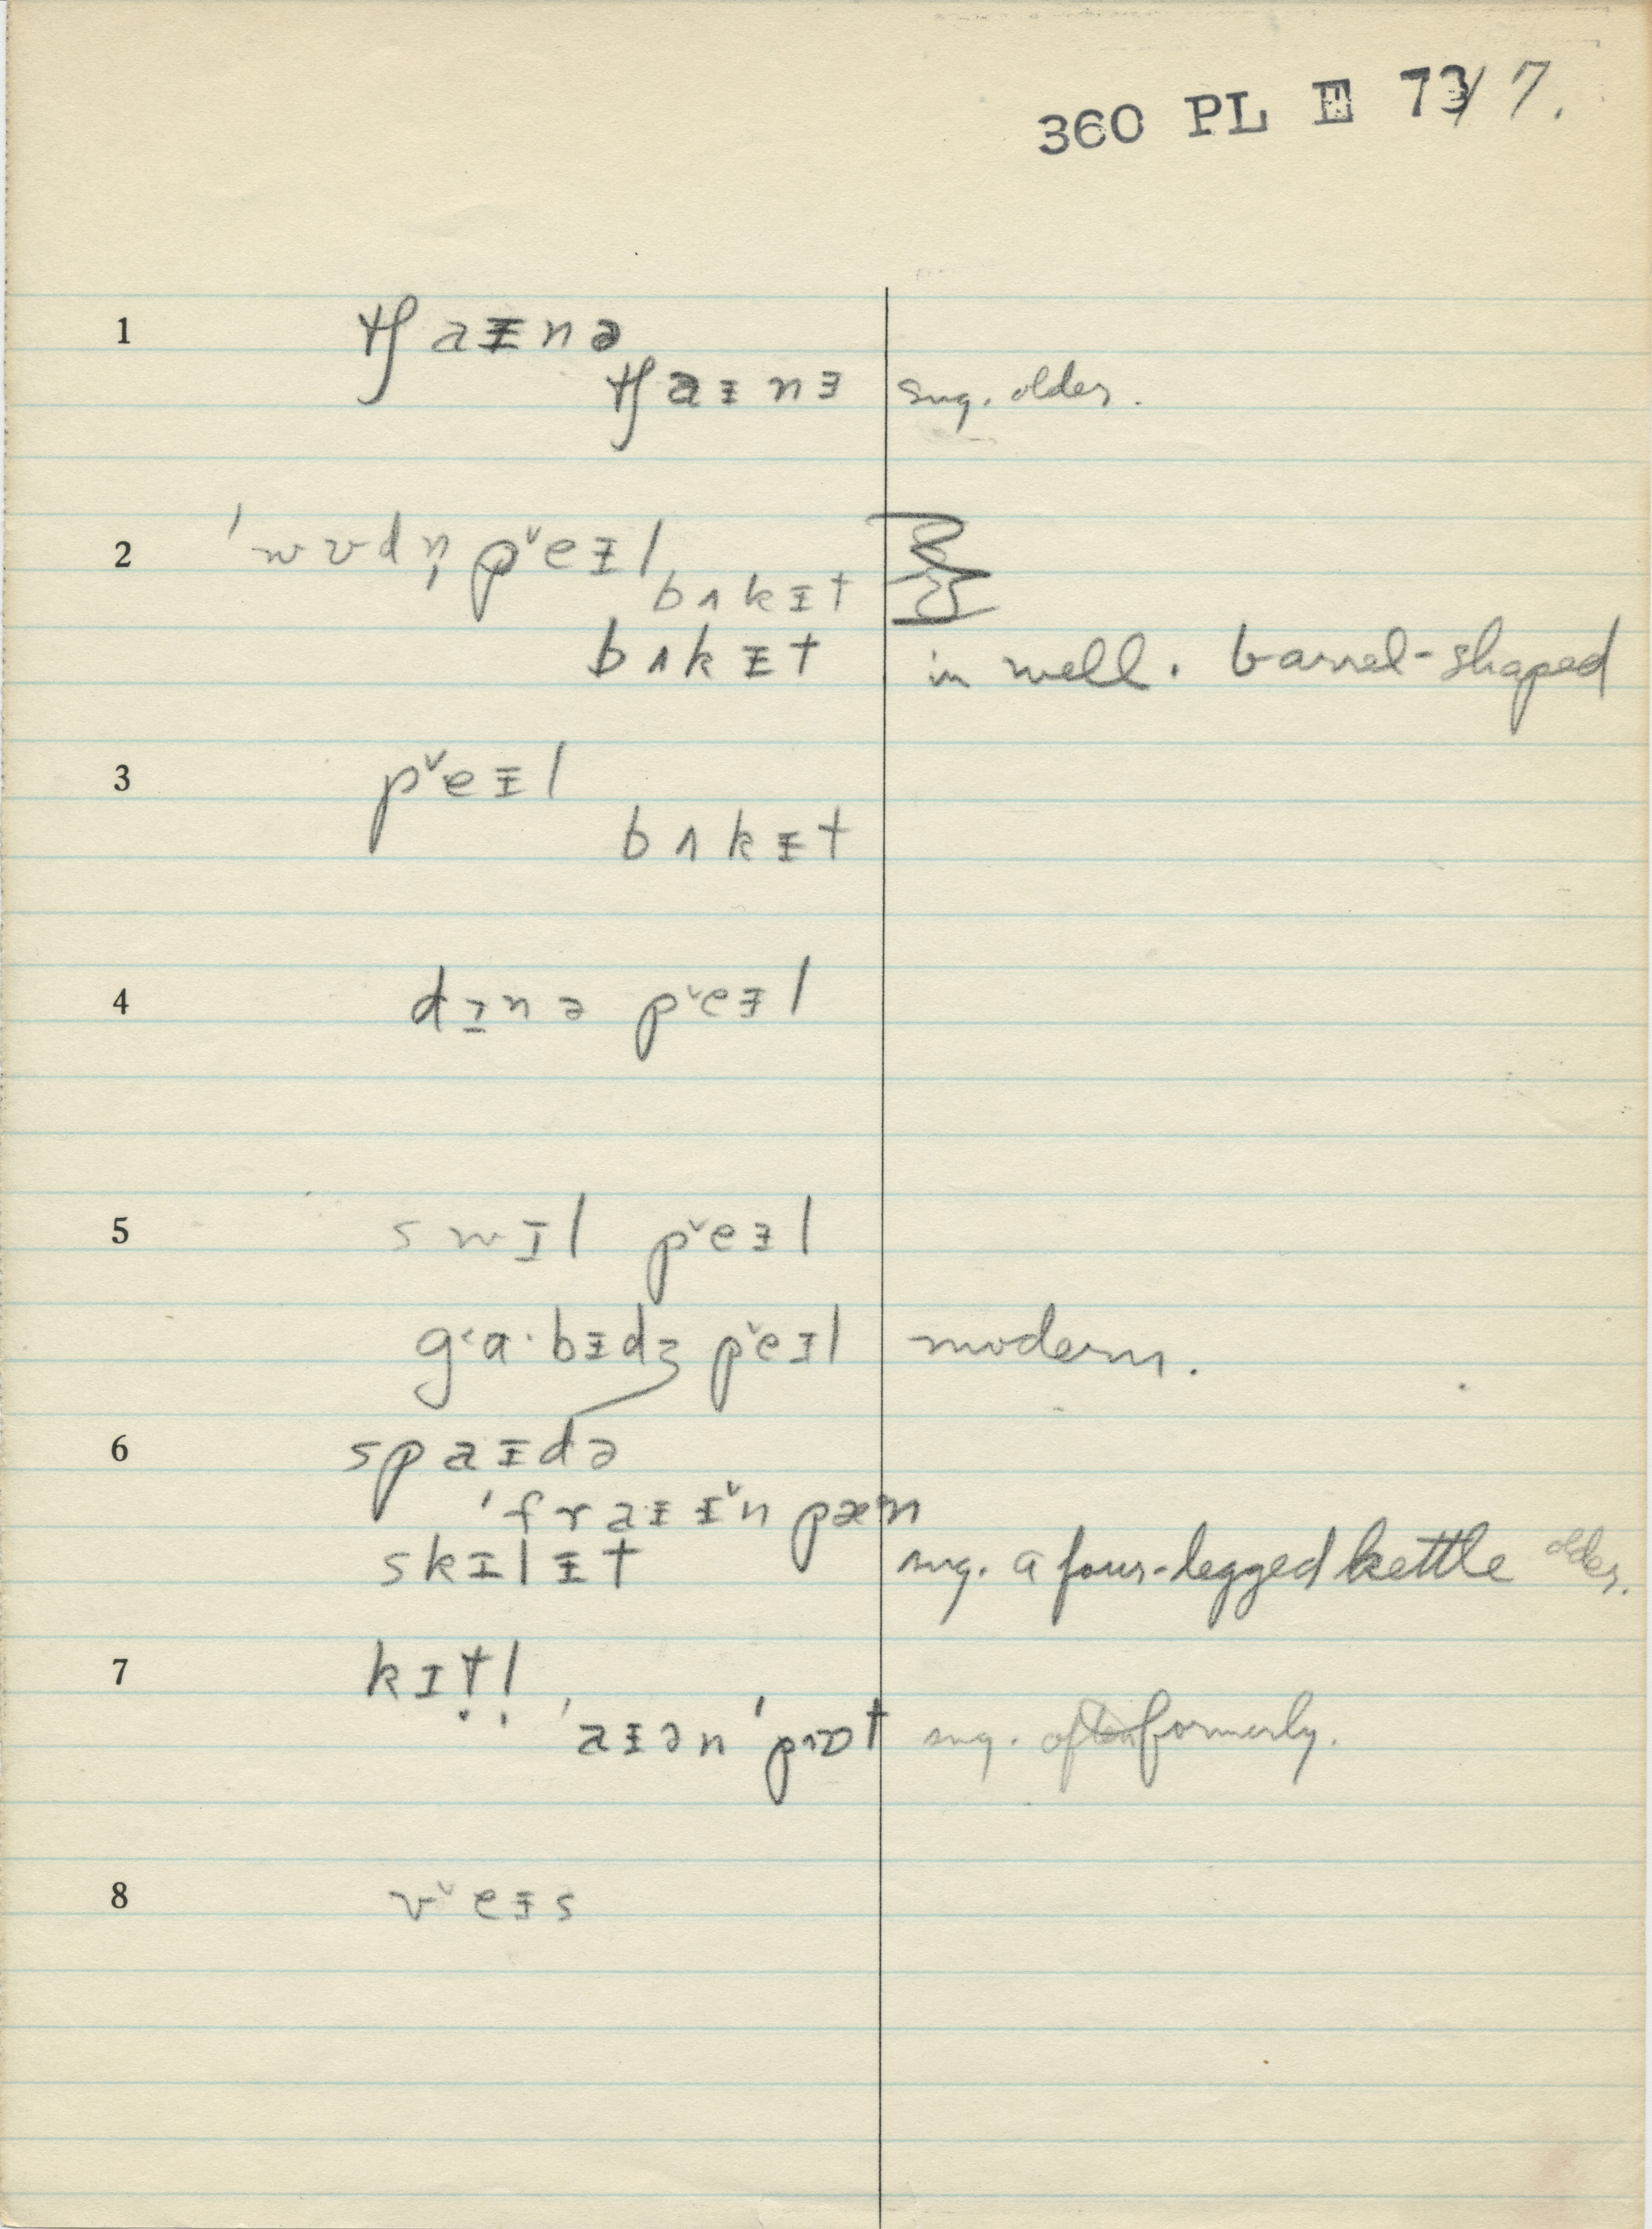 360 PL E 73/7.
1 tʃaɪnə
tʃaɪnɜ sug. older.
2 ˈwʊdn̩ pˇeɪl
bʌkɪt
bʌkɪt in well. barrel-shaped
3 pˇeɪl
bʌkɪt
4 dɪnə pˇeɪl
5 swɪl pˇeɪl
gʻa·bɪdʒ pˇeɪl modern.
6 spaɪdə
ˈfraɪɪˇn pæn
skɪlɪt sug. a four-legged kettle older.
7 kɪṭḷ
ˈaɪən ˈpɒt sug. often formerly.
8 vˇeɪs